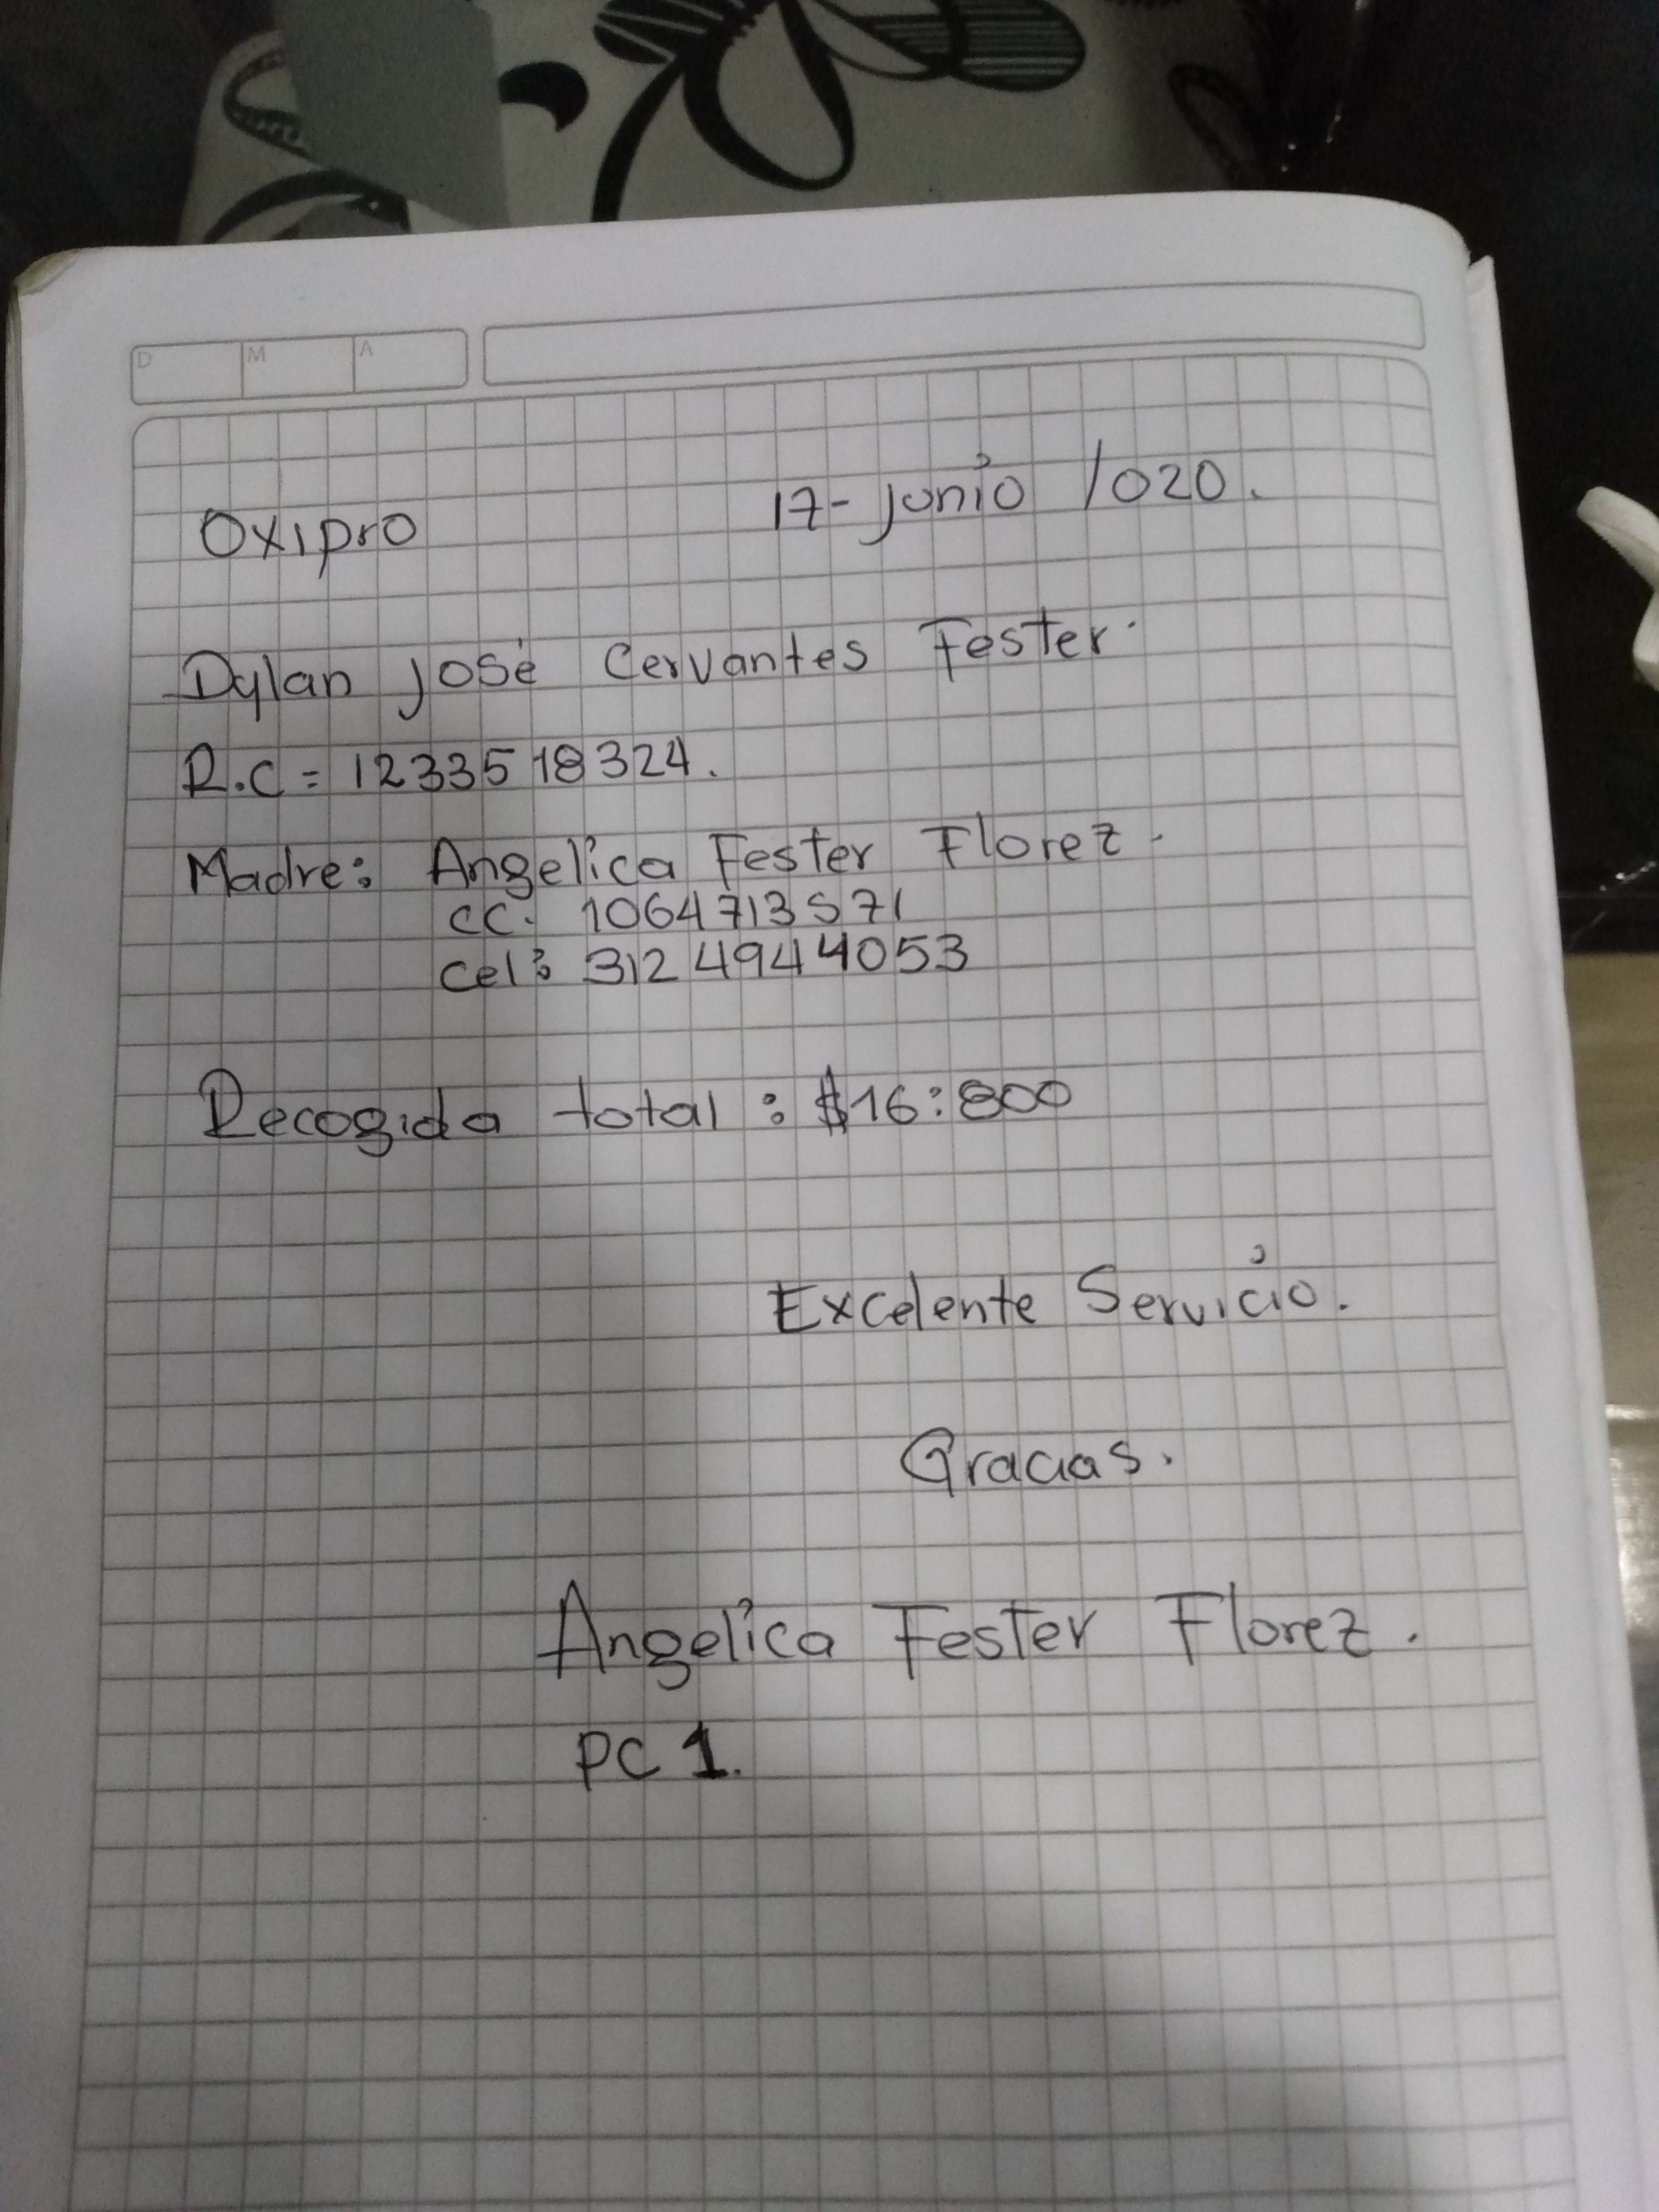 D M A
Oxipro 17- junio /020.
Dylan José Cervantes Fester.
R.C = 1233518324.
Madre: Angelica Fester Florez.
CC. 1064713571
Cel: 312 4944053
Recogida total : $16:800
Excelente Servicio.
Gracias.
Angelica Fester Florez.
PC 1.